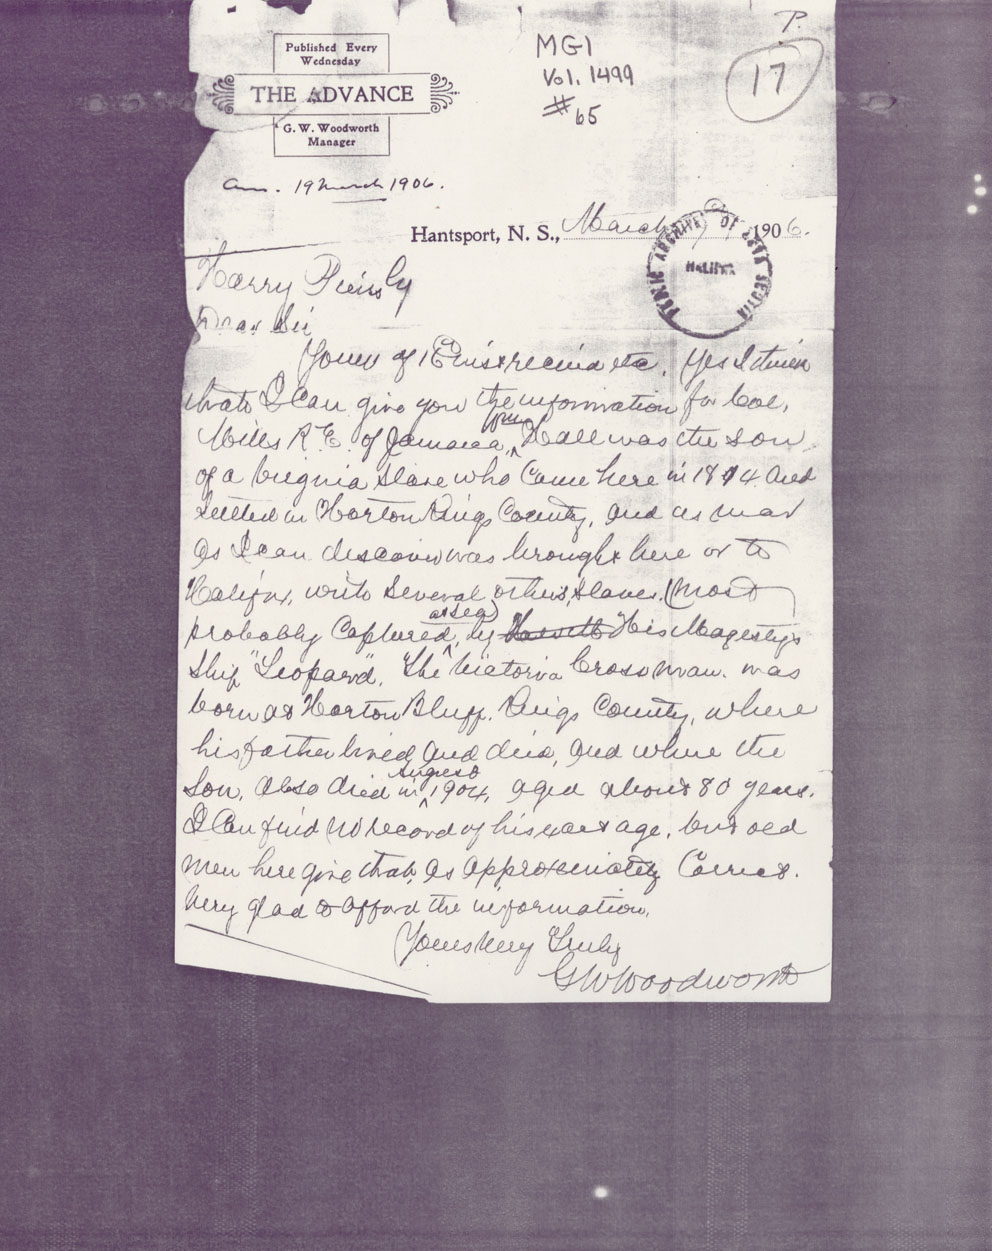 P.
Published Every
Wednesday
THE ADVANCE
G. W. Woodworth
Manager
MG1
Vol. 1499
#65
17
Ans. 19 March 1906.
Hantsport, N. S., March 1906.
PUBLIC ARCHIVES OF NOVA SCOTIA
HALIFAX
Harry Piers
Dear Sir
Yours of inst received etc. Yes I think
that I can give you the information for Col.
Wm
Mills R. E. of Jamaica, ^ Hall was the son
of a Virginia slave who came here in 1814 and
settled in Horton Kings County, and as near
as I can discover was brought here or to
Halifax, with several others, slaves, (most
at sea)
probably captured, ^ by His Magestys
Ship "Leopard". The Victoria Cross man was
born at Horton Bluff. Kings County, where
his father lived and died, and where the
August
son, also died in ^ 1904, aged about 80 years.
I can find no record of his exact age, but old
men here give that, as approximately correct.
Very glad to afford the information.
Yours Very Truly
G W Woodworth